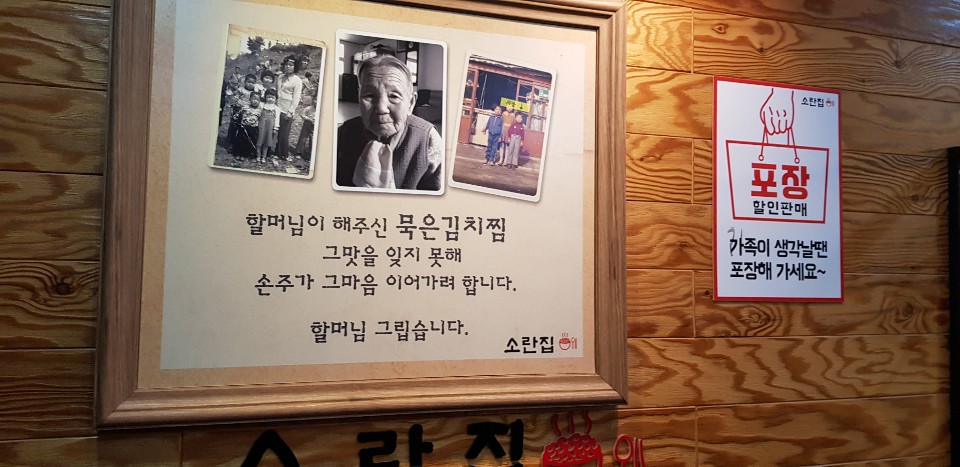 할머님이 해주신 묵은김치찜
그맛을 잊지 못해
손주가 그마음 이어가려 합니다.
할머님 그립습니다.
소란집
소란집
포장
할인판매
가족이 생각날땐
포장해 가세요~
소란집